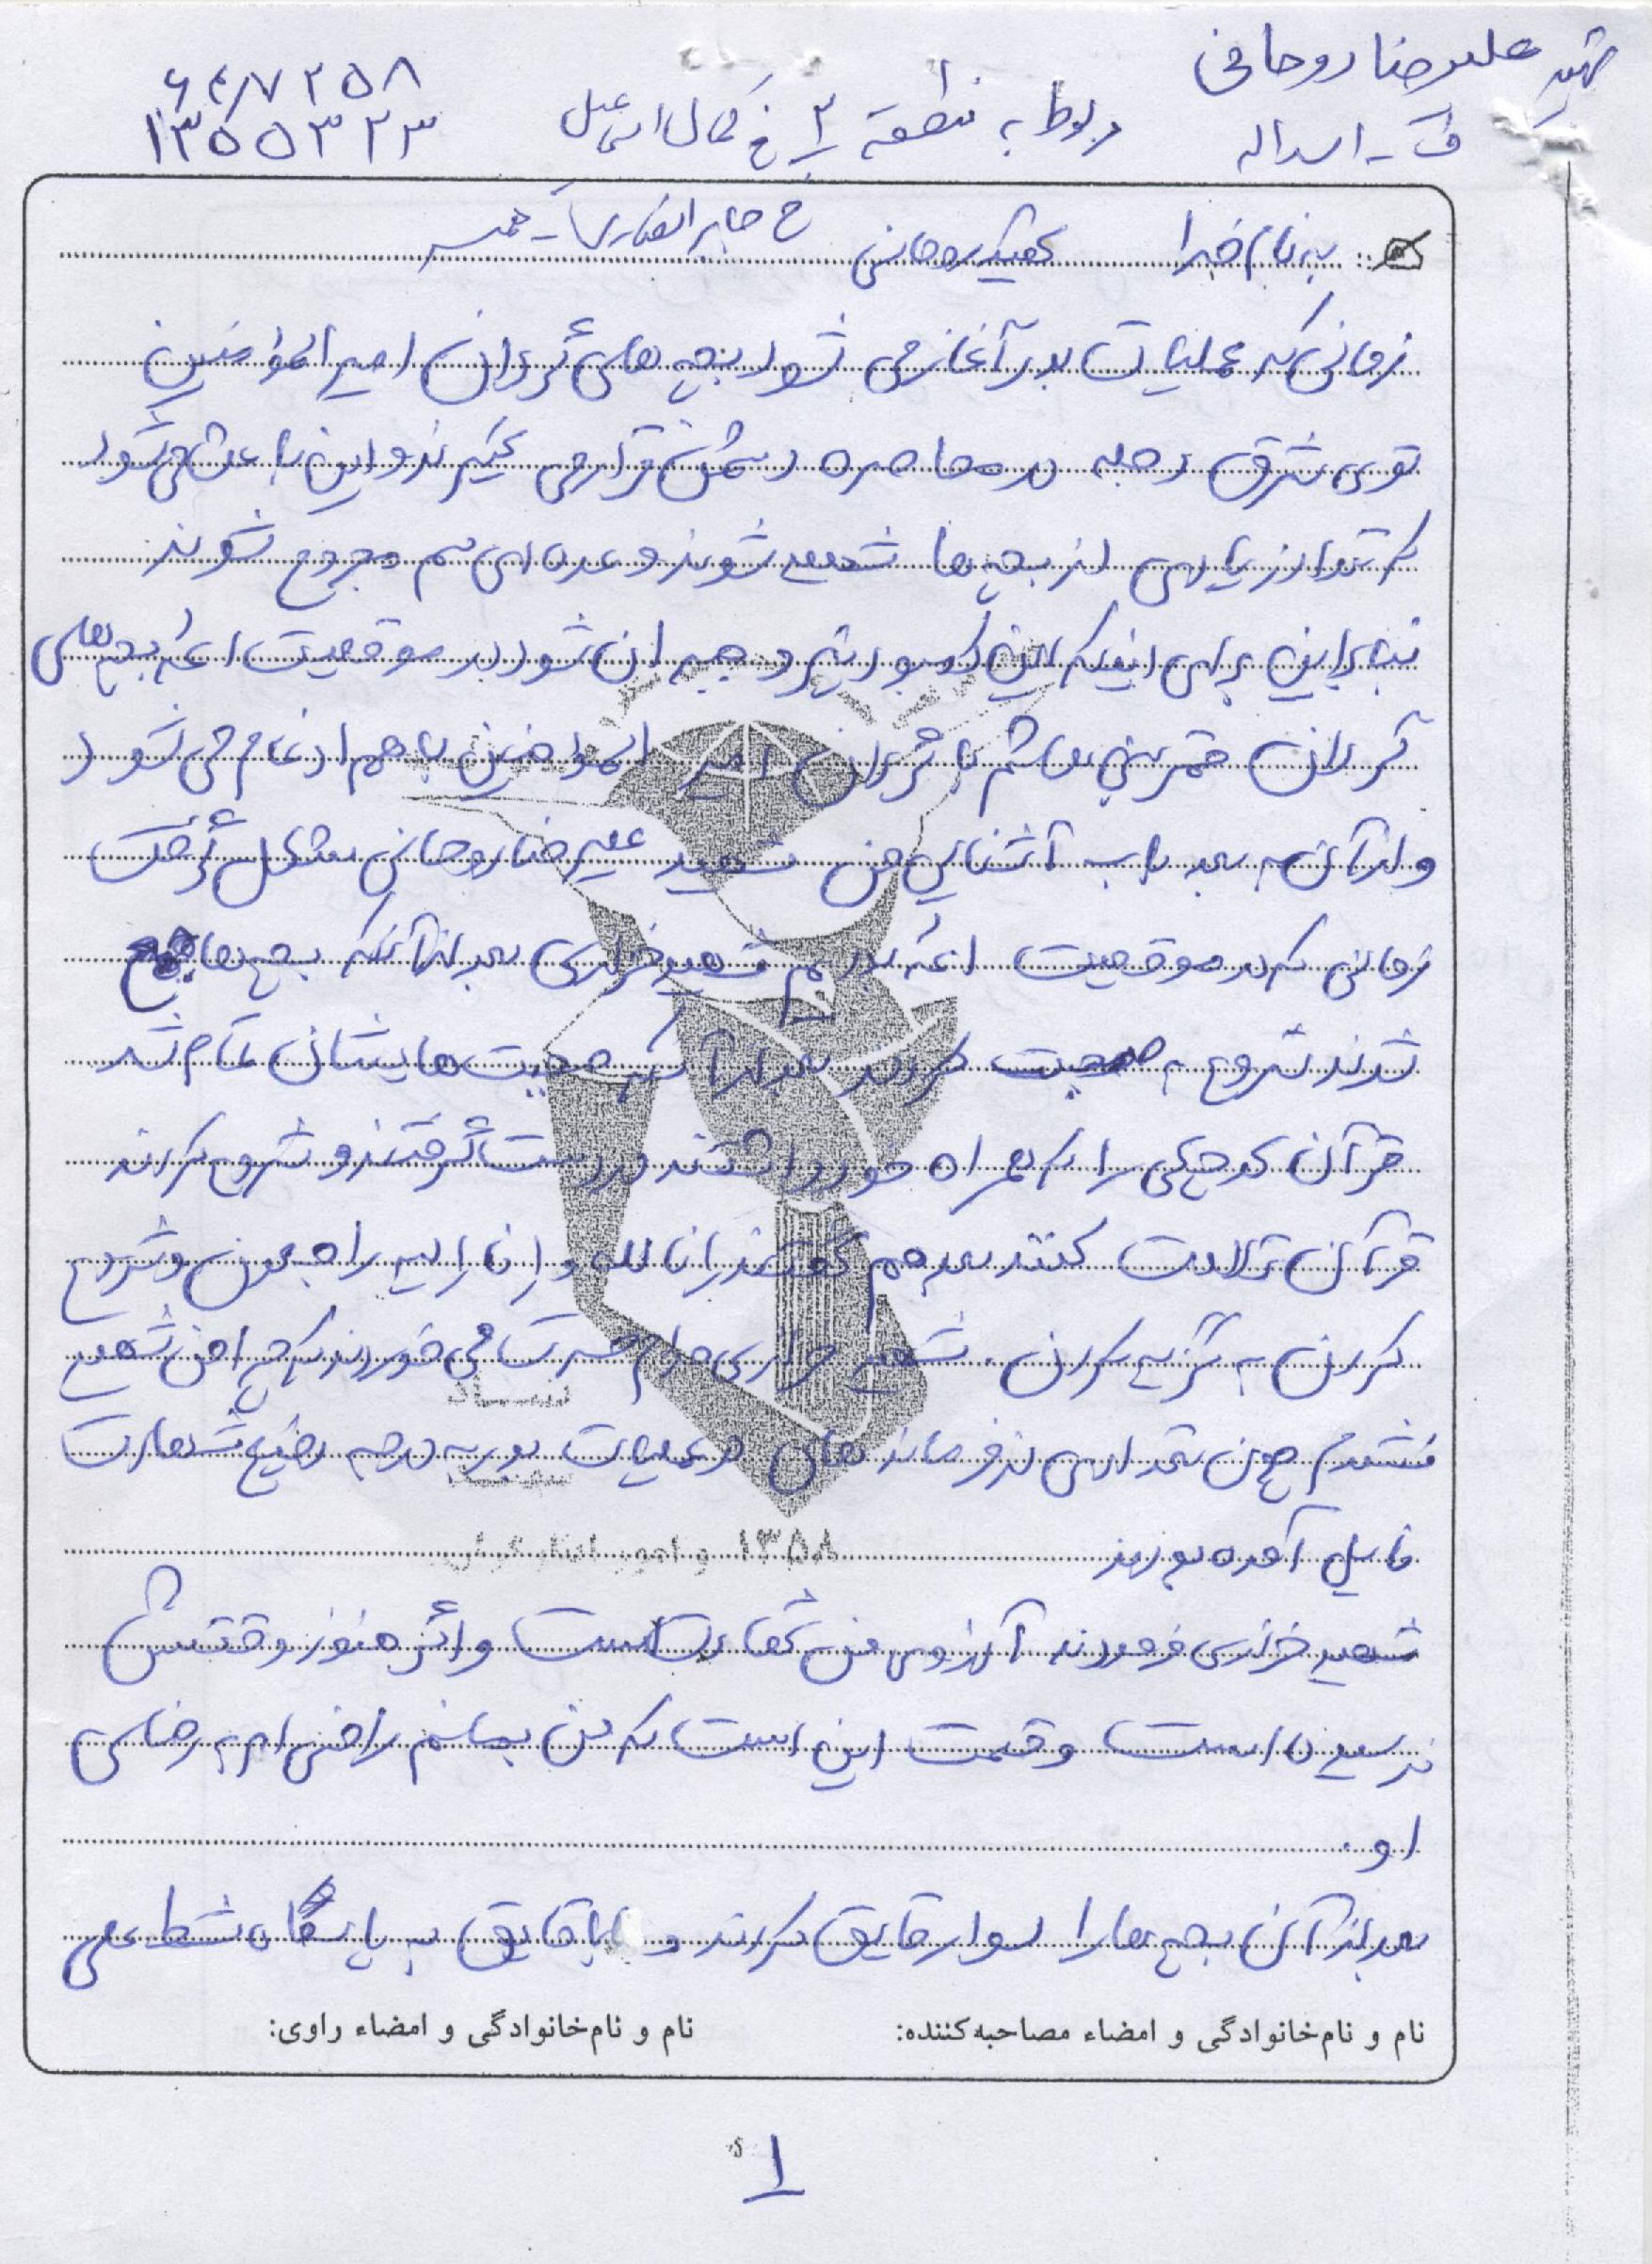 شهید علیرضا روحانی
ف - اسداله
مربوط به منطقه ۳ خ کمال اسماعیل
۶۶۸۷۲۵۸
۱۳۵۵۳۲۳
به نام خدا
خ جابر انصاری - همسر
زمانی که عملیات بدر آغاز می شود بچه های گردان امیر المؤمنین
توی شرق دجله در محاصره دشمن قرار می گیرند و این باعث می شود
که تعداد زیادی از بچه ها شهید شوند و عده ای هم مجروح شوند
بنابراین برای اینکه این کمبود نیرو جبران شود در موقعیت ائمه بچه های
گردان قمر بنی هاشم با گردان امیر المؤمنین با هم ادغام می شود
و از آن به بعد باب آشنایی من شهید علیرضا روحانی شکل گرفت
زمانی که در موقعیت ائمه بودیم شهید خرازی بعد از آنکه بچه ها جمع
شدند شروع به صحبت کردند بعد از آنکه صحبت هایشان تمام شد
قرآن کوچکی را که همراه خود داشتند در دست گرفتند و شروع کردند
قرآن تلاوت کنند بعد هم گفتند انا لله و انا الیه راجعون و شروع
کردن به گریه کردن. شهید خرازی مدام حسرت می خوردند که چرا من شهید
نشدم چون تعدادی از فرمانده های در عملیات بدر به درجه رفیع شهادت
نایل آمده بودند
۱۳۵۸
شهید خرازی فرمودند آرزوی من شهادت است و اگر هنوز وقتش
نرسیده است و قسمت این است که من بمانم راضی ام به رضای
او.
بعد از آن بچه ها را سوار قایق کردند و با قایق به پاسگاه شط علی
نام و نام خانوادگی و امضاء مصاحبه کننده:
نام و نام خانوادگی و امضاء راوی:
۱